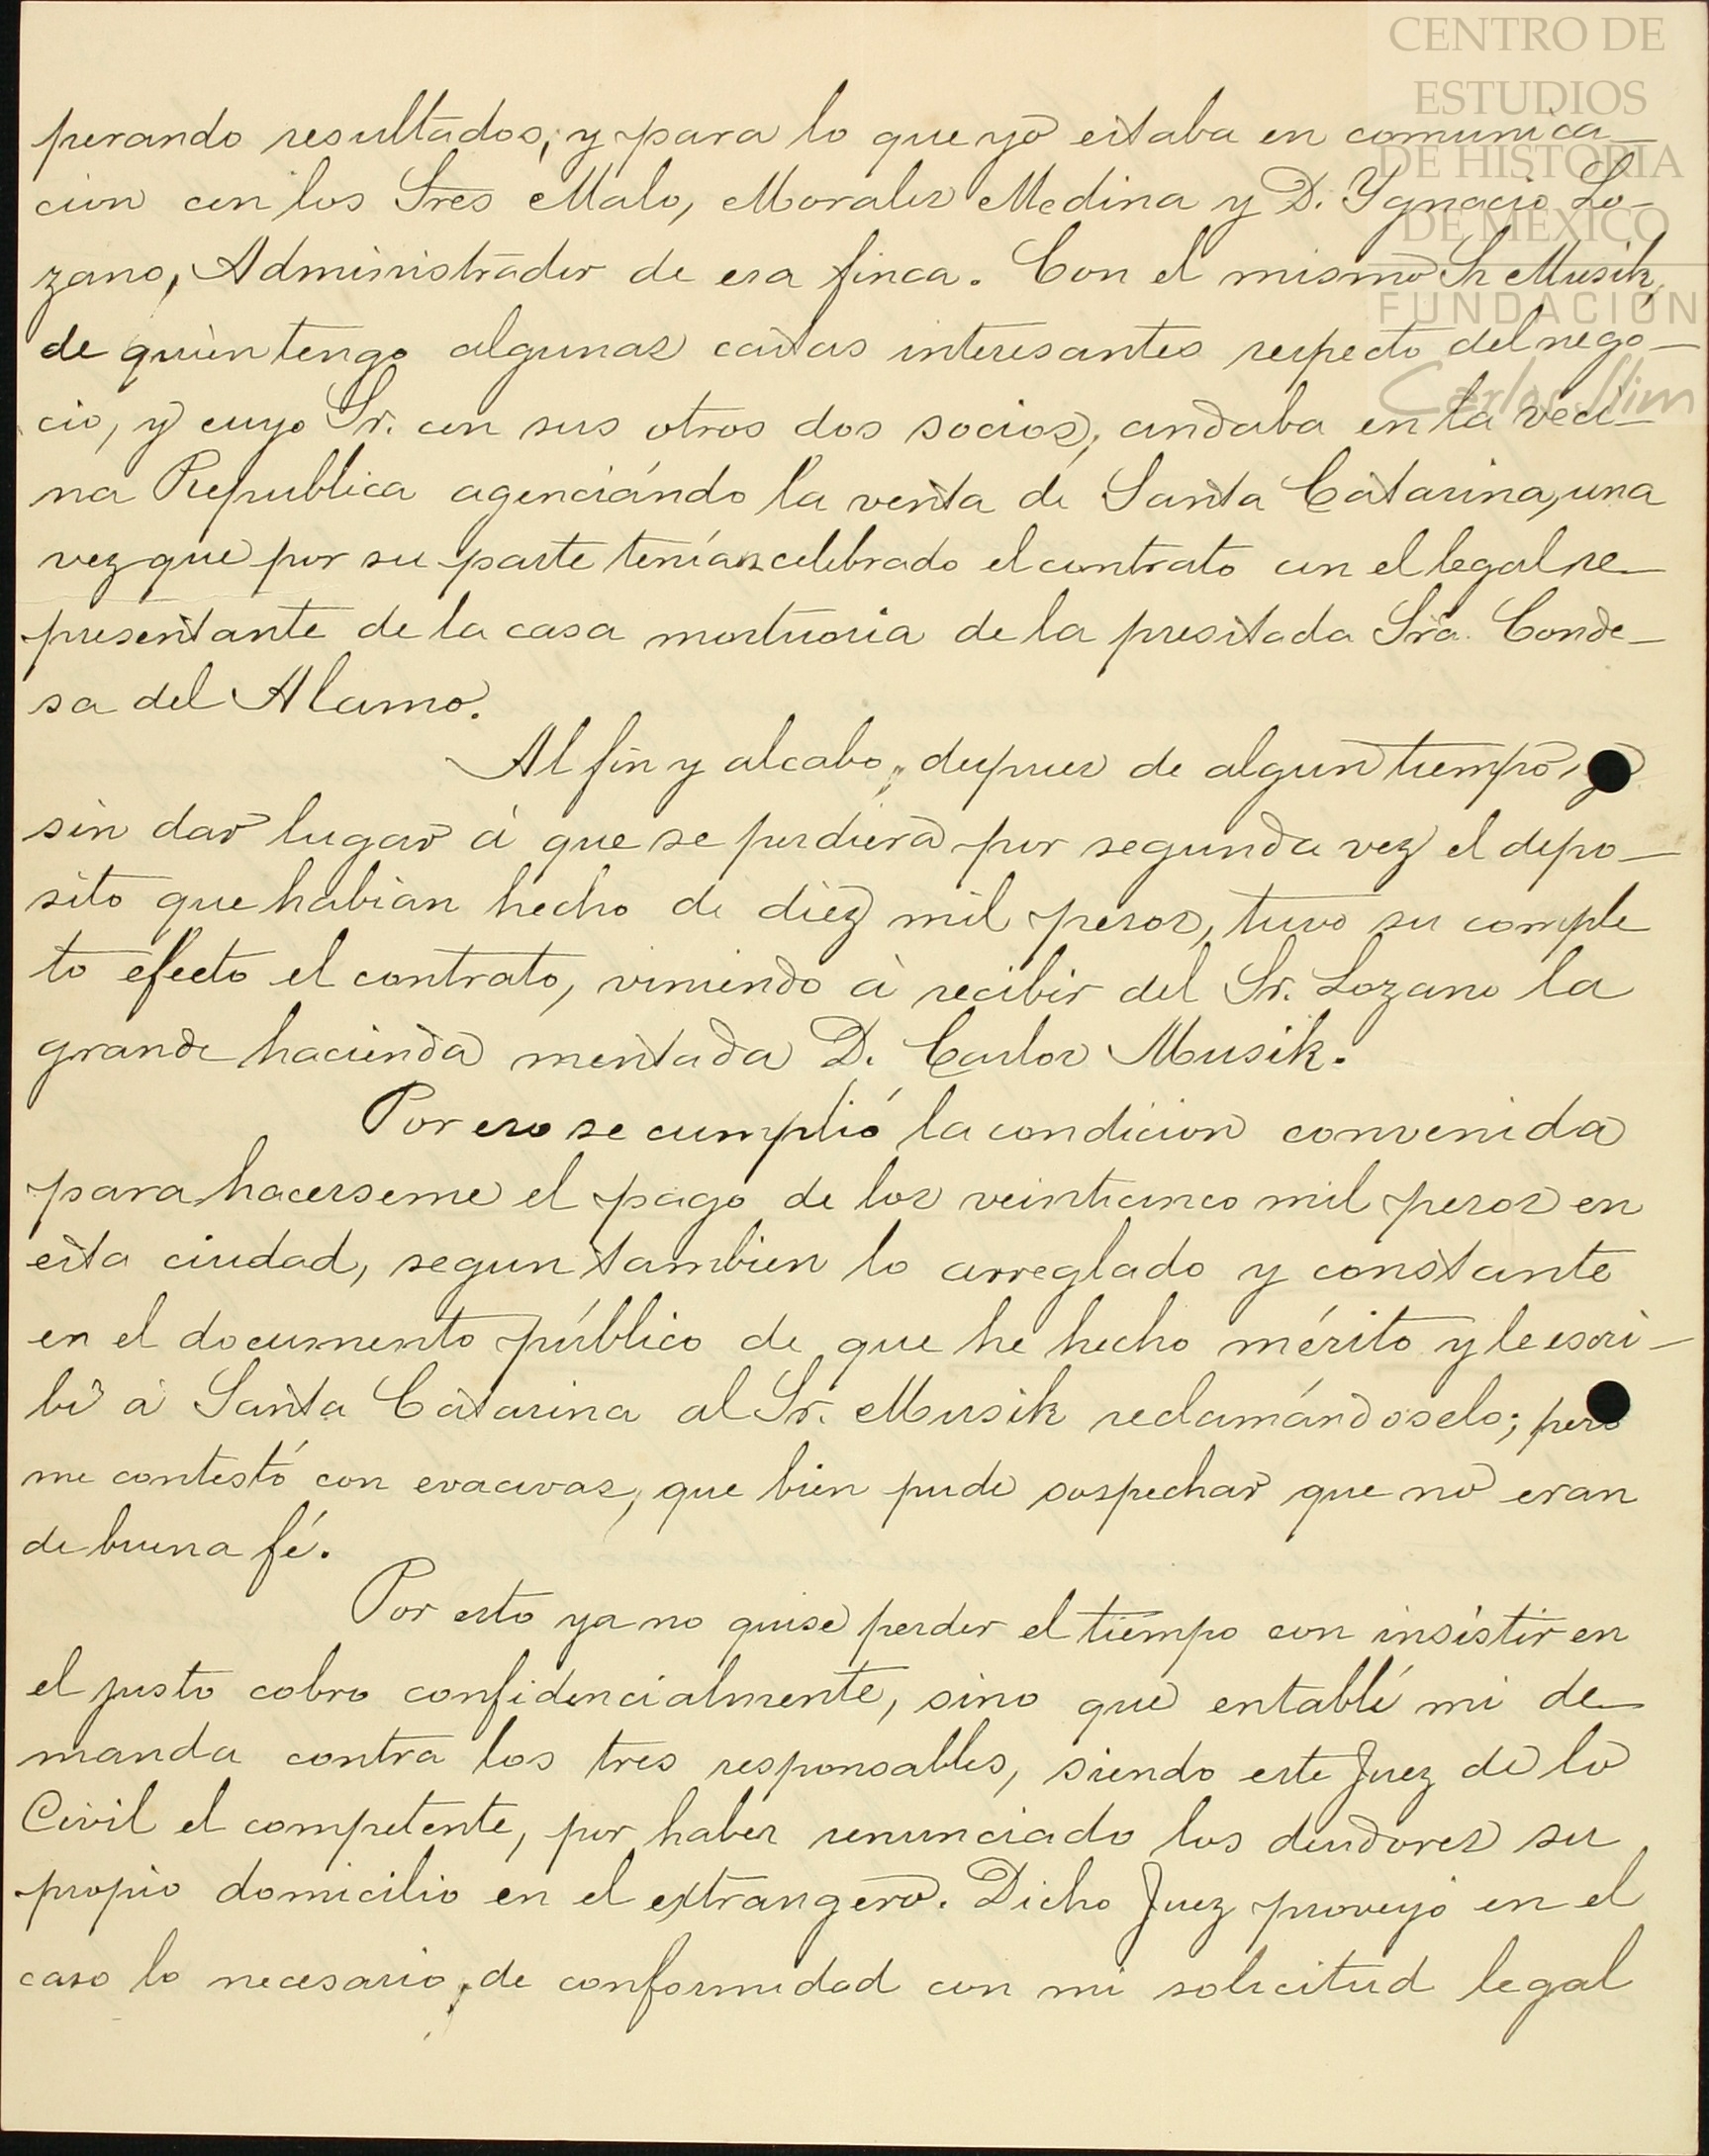 CENTRO DE
ESTUDIOS
DE HISTORIA
DE MEXICO
FUNDACIÓN
Carlos Slim
perando resultados; y para lo que yo estaba en comunica-
cion con los Sres Malo, Morales Medina y D. Ygnacio Lo-
zano, Administrador de esa finca. Con el mismo Sr Musik,
de quien tengo algunas cartas interesantes respecto del nego-
cio, y cuyo Sr. con sus otros dos socios, andaba en la veci-
na Republica agenciándo la venta de Santa Catarina, una
vez que por su parte tenían celebrado el contrato con el legal re-
presentante de la casa mortuoria de la presitada Sra. Conde-
sa del Alamo.
Al fin y al cabo, despues de algun tiempo, y
sin dar lugar á que se perdiera por segunda vez el depo-
sito que habian hecho de diez mil pesos, tuvo su comple
to efecto el contrato, viniendo á recibir del Sr. Lozano la
grande hacienda mentada D. Carlos Musik.
Por eso se cumplió la condicion convenida
para hacerseme el pago de los veinticinco mil pesos en
esta ciudad, segun tambien lo arreglado y constante
en el documento público de que he hecho mérito y le escri-
bí á Santa Catarina al Sr. Musik reclamándoselo; pero
me contestó con evacivas, que bien pude sospechar que no eran
de buena fé.
Por esto ya no quise perder el tiempo con insistir en
el justo cobro confidencialmente, sino que entablé mi de-
manda contra los tres responsables, siendo este Juez de lo
Civil el competente, por haber renunciado los deudores su
propio domicilio en el extrangero. Dicho Juez proveyó en el
caso lo necesario, de conformidad con mi solicitud legal